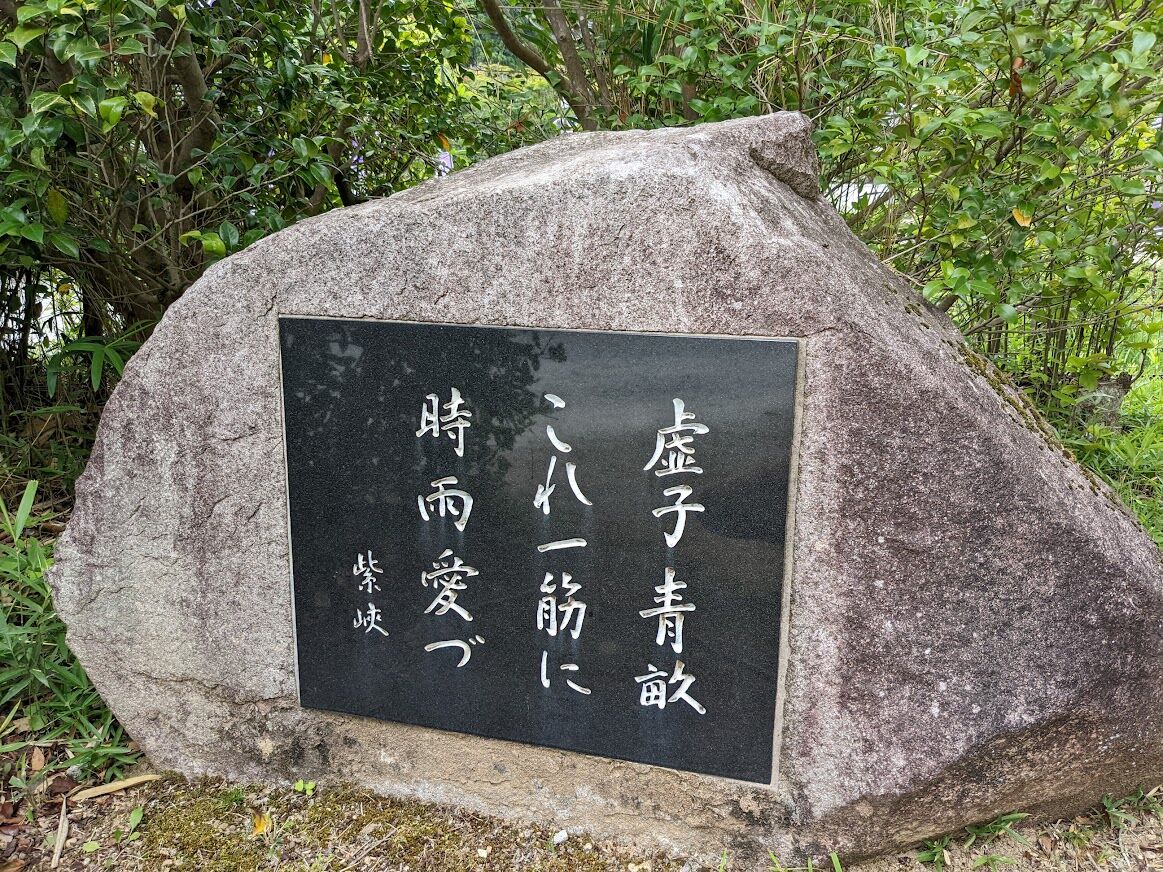 虚子青畝
これ一筋に
時雨愛づ
紫峽